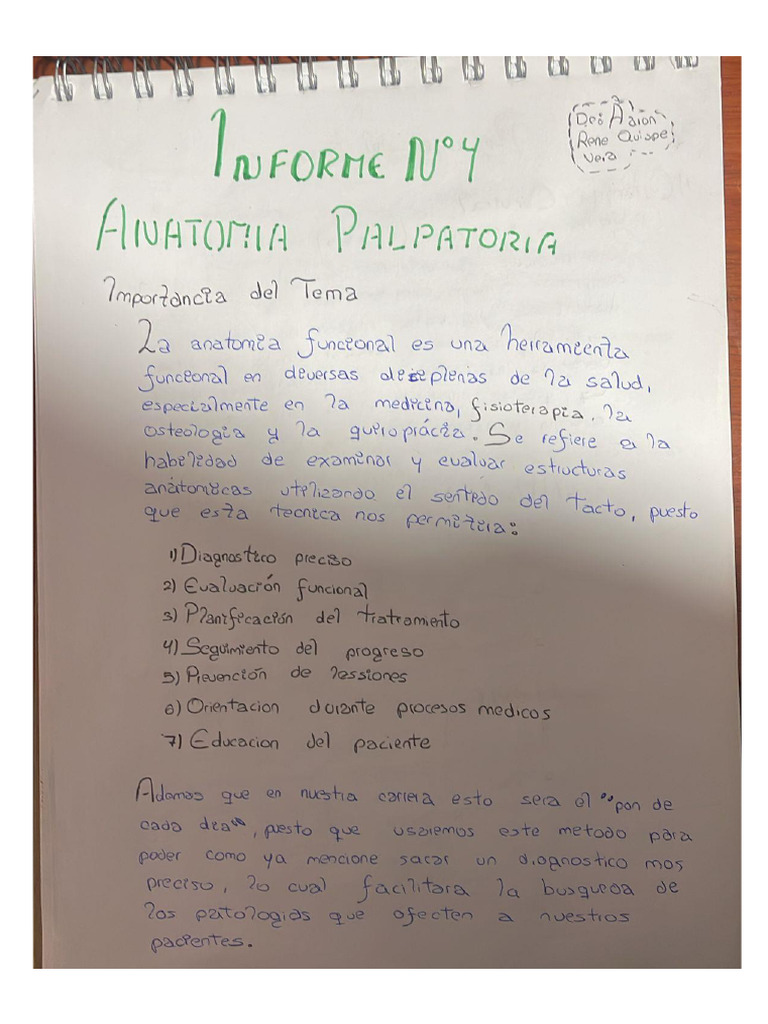 INFORME Nº4
Rene Quispe
Vera
ANATOMIA PALPATORIA
Importancia del Tema
La anatomia funcional es una herramienta
funcional en diversas diseplenas de la salud,
especialmente en la medicina, fisioterapia, la
osteologia y la quiropráctia. Se refiere a la
habilidad de examinar y evaluar estructuras
anátomicas utilizando el sentido del tacto, puesto
que esta tecnica nos permitira:
1) Diagnostico preciso
2) Evaluación funcional
3) Planificación del tratramiento
4) Seguimiento del progreso
5) Prevención de lessiones
6) Orientacion durante procesos medicos
7) Educacion del paciente
Ademas que en nuestra carrera esto sera el "pan de
cada dia", puesto que usaremos este metodo para
poder como ya mencione sacar un diagnostico mas
preciso, lo cual facilitara la busqueda de
las patologias que afecten a nuestros
pacientes.